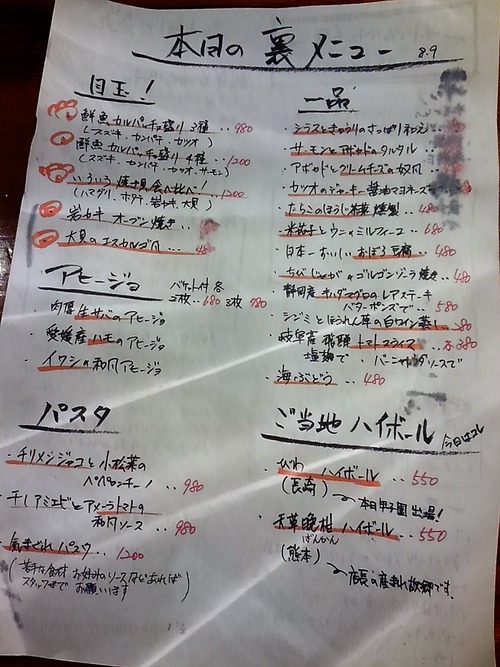 本日の裏メニュー 8.9
目玉!
鮮魚カルパッチョ盛り3種 ‥980
(スズキ、カンパチ、カツオ)
鮮魚カルパッチョ盛り4種 ‥1200
(スズキ、カンパチ、カツオ、サーモン)
いろいろ焼き貝食べ比べ! ‥1200
(ハマグリ、ホタテ、岩ガキ、大貝)
岩ガキ オーブン焼き‥
大貝のエスカルゴ風 ‥480
アヒージョ
バケット付 各
2枚‥680 3枚 780
・肉厚生サバのアヒージョ
・愛媛産ハモのアヒージョ
・イワシの和風アヒージョ
パスタ
・チリメンジャコと小松菜の
ペペロンチーノ ‥980
・干しアミエビとアメーラトマトの
和風ソース ‥980
・気まぐれパスタ‥1200
(苦手な食材 お好みのソースなどあれば
スタッフまでお願います)
一品
・シラスときゅうりのさっぱり和え
・サーモンとアボカドのタルタル
・アボカドとクリームチーズの奴風
・カツオのジャーキー 醤油マヨネーズで
・たらこのほうじ茶燻製 ‥480
・米茄子とウニのミルフィーユ ‥680
・日本一おいしいおぼろ豆腐 ‥480
・ちびじゃがのゴルゴンゾーラ焼き‥480
・静岡産キハダマグロのレアステーキ
バターポンズで‥580
・シジミとほうれん草の白ワイン蒸し
・岐阜産 飛騨トマトスライス ‥各380
塩麹で バーニャカウダソースで
・海ぶどう ‥480
ご当地ハイボール 今日はコレ
・びわ ハイボール ‥550
(長崎) 本日甲子園出場!
・天草晩柑ハイボール ‥550
ばんかん
(熊本) 店長の産まれ故郷です。